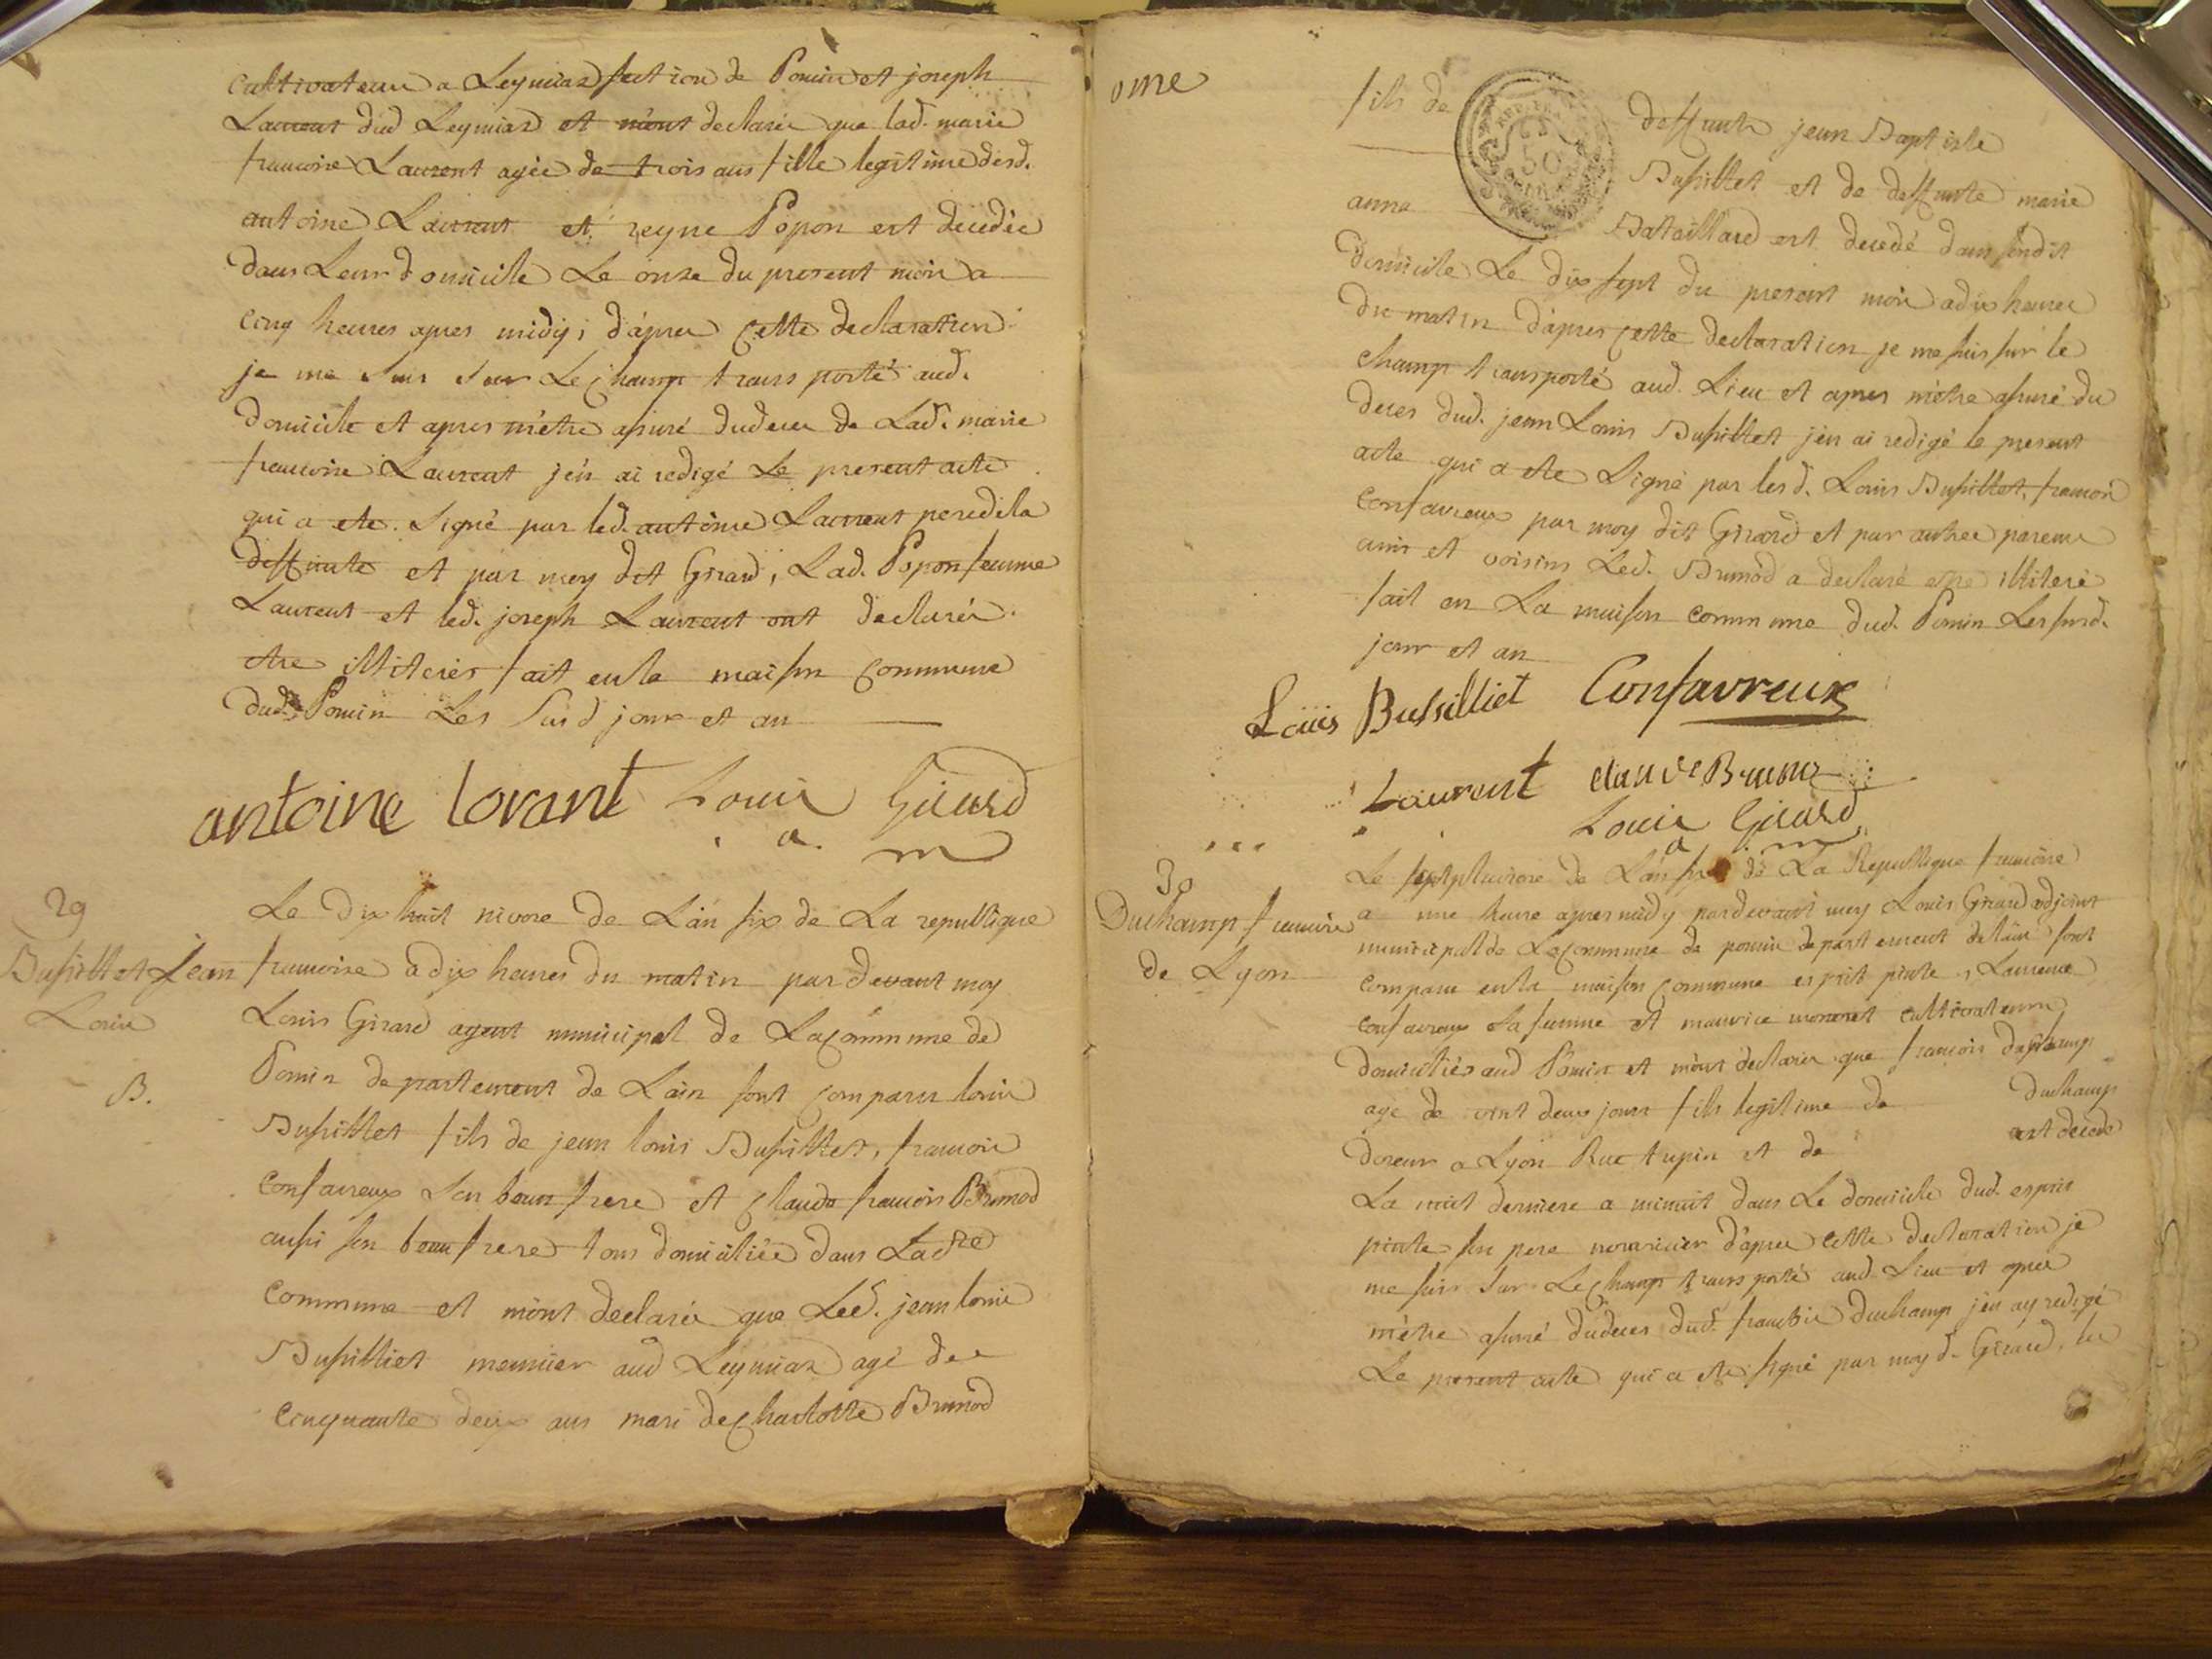 cultivateur a Leymiaz section de Pomin et joseph
Laurent dud Leymiaz et m'ont declarés que lad. marie
francoise Laurent agée de trois ans fille legitime desd.
antoine Laurent et reyne Popon est decedée
dans Leur domicile Le onze du present mois a
cinq heures apres midy; d'apres cette declaration
je me suis sur Le champ transporté aud.
domicile et apres m'etre assuré dudeces de Lad. marie
francoise Laurent j'en ai redigé Le present acte
qui a ete. signé par led. antoine Laurent pere de la
deffunte et par moy dit Girard, Lad. Popon femme
Laurent et led. joseph Laurent ont declarés
etre illiterés fait en la maison commune
dud. Pomin Les susd jour et an
antoine lorant Louis Girard
a. m
29
Bussilliet Jean
Louis
B.
Le dix huit nivose de L'an six de La republique
francoise a dix heures du matin par devant moy
Louis Girard agent municipal de La commune de
Pomin departement de Lain sont comparu louis
Bussilliet fils de jean louis Bussilliet, francois
confavreux son beau frere et claude francois Brunod
aussi son beau frere tous domiciliés dans Ladte
commune et m'ont declarés que Led. jean louis
Bussilliet meunier aud Leymiaz agé de
cinquante deux ans mari de charlotte Brunod
ome
fils de deffunt jean Baptiste
Bussilliet et de deffunte marie
anne Bataillard est decedé dans sondit
domicile Le dix sept du present mois a dix heures
du matin d'apres cette declaration je me suis sur le
champ transporté aud. Lieu et apres m'etre assuré du
deces dud. jean Louis Bussilliet j'en ai redigé le present
acte qui a ete signé par les d. Louis Bussilliet, francois
confavreux par moy dit Girard et par autres parens
amis et voisins Led. Brunod a declaré etre illiteré
fait en La maison commune dud. Pomin Les susd.
jour et an
Loüis Bussilliet Confavreux
Laurent claude Bruno
Louis Girard
a m
30
Duchamp francois
de Lyon
Le sept pluviose de L'an six de La Republique francoise
a une heure apres midy pardevant moy Louis Girard adjoint
municipal de La commune de pomin departement de lain sont
comparu en la maison commune esprit pirate, Laurence
confavreux sa femme et maurice cultivateurs
domiciliés aud Pomin et m'ont declarés que francois duchamp
agé de vint deux jours fils legitime de duchamp
doreur a Lyon Rue tupin et de est decedé
La nuit derniere a minuit dans Le domicile dud. esprit
pirate son pere nourricier d'apres cette declaration je
me suis sur Le champ transporté aud Lieu et apres
m'etre assuré dudeces dud. francois duchamp j'en ay redigé
Le present acte qui a ete signé par moy d. Girard, les